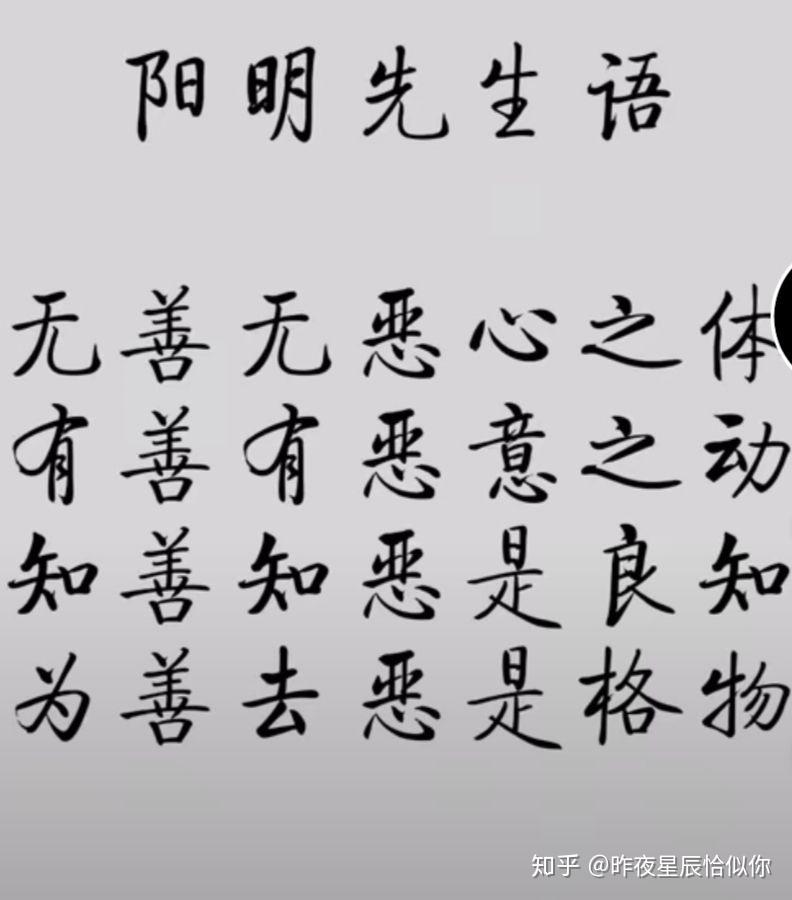 阳明先生语
无善无恶心之体
有善有恶意之动
知善知恶是良知
为善去恶是格物
知乎 @昨夜星辰恰似你